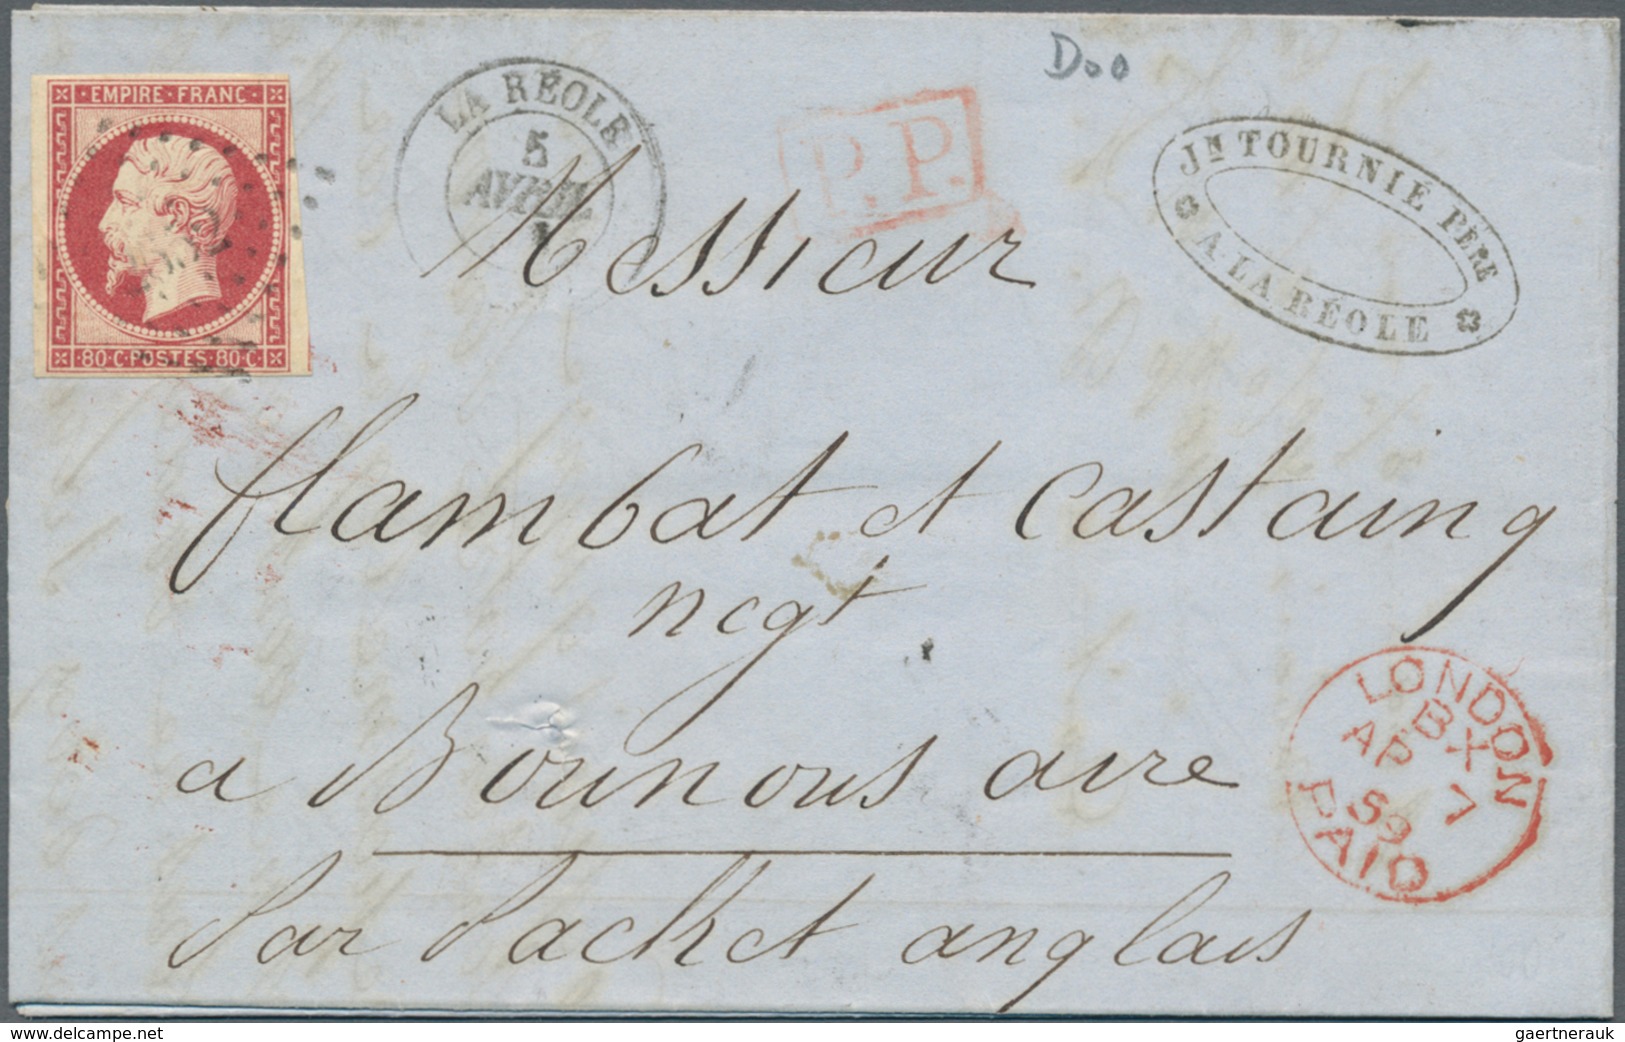 Doo
EMPIRE · FRANC ·
80 · C · POSTES · 80 · C
LA RÉOLE
5
AVRIL
P.P.
Jn TOURNIÉ PÈRE
A · LA RÉOLE
Messieur
flambat et Castaing
negt
a Bounous aire
Par Packet anglais
LONDON
BX
AP 7
59
PAID
www.delcampe.net
gaertnerauk